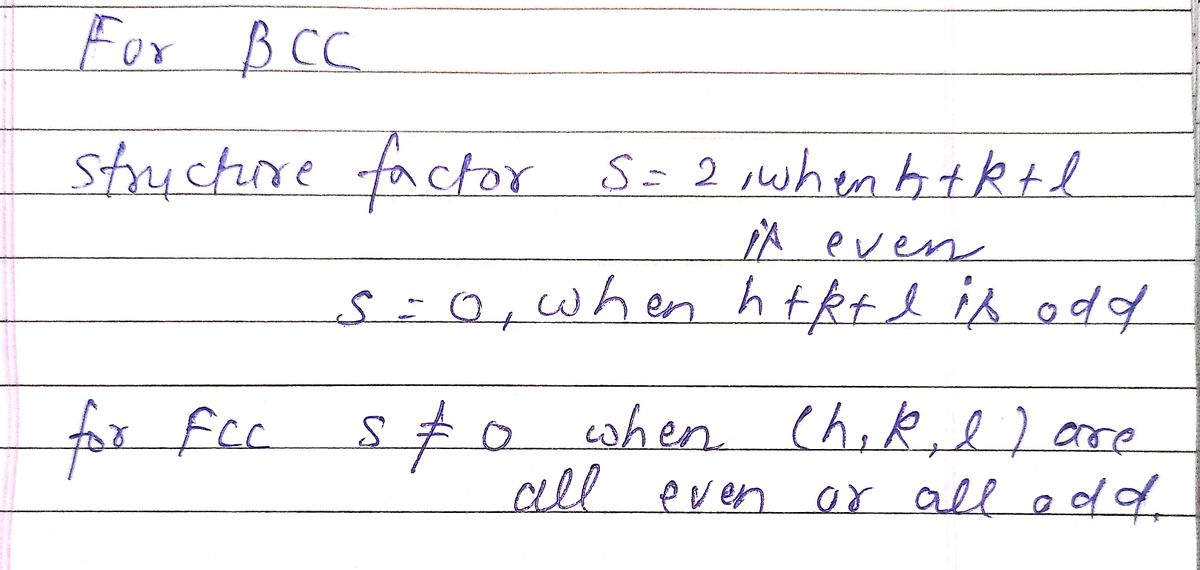 For BCC
structure factor S = 2, when h+k+l
is even
S = 0, when h+k+l is odd
for FCC S ≠ 0 when (h, k, l) are
all even or all odd.